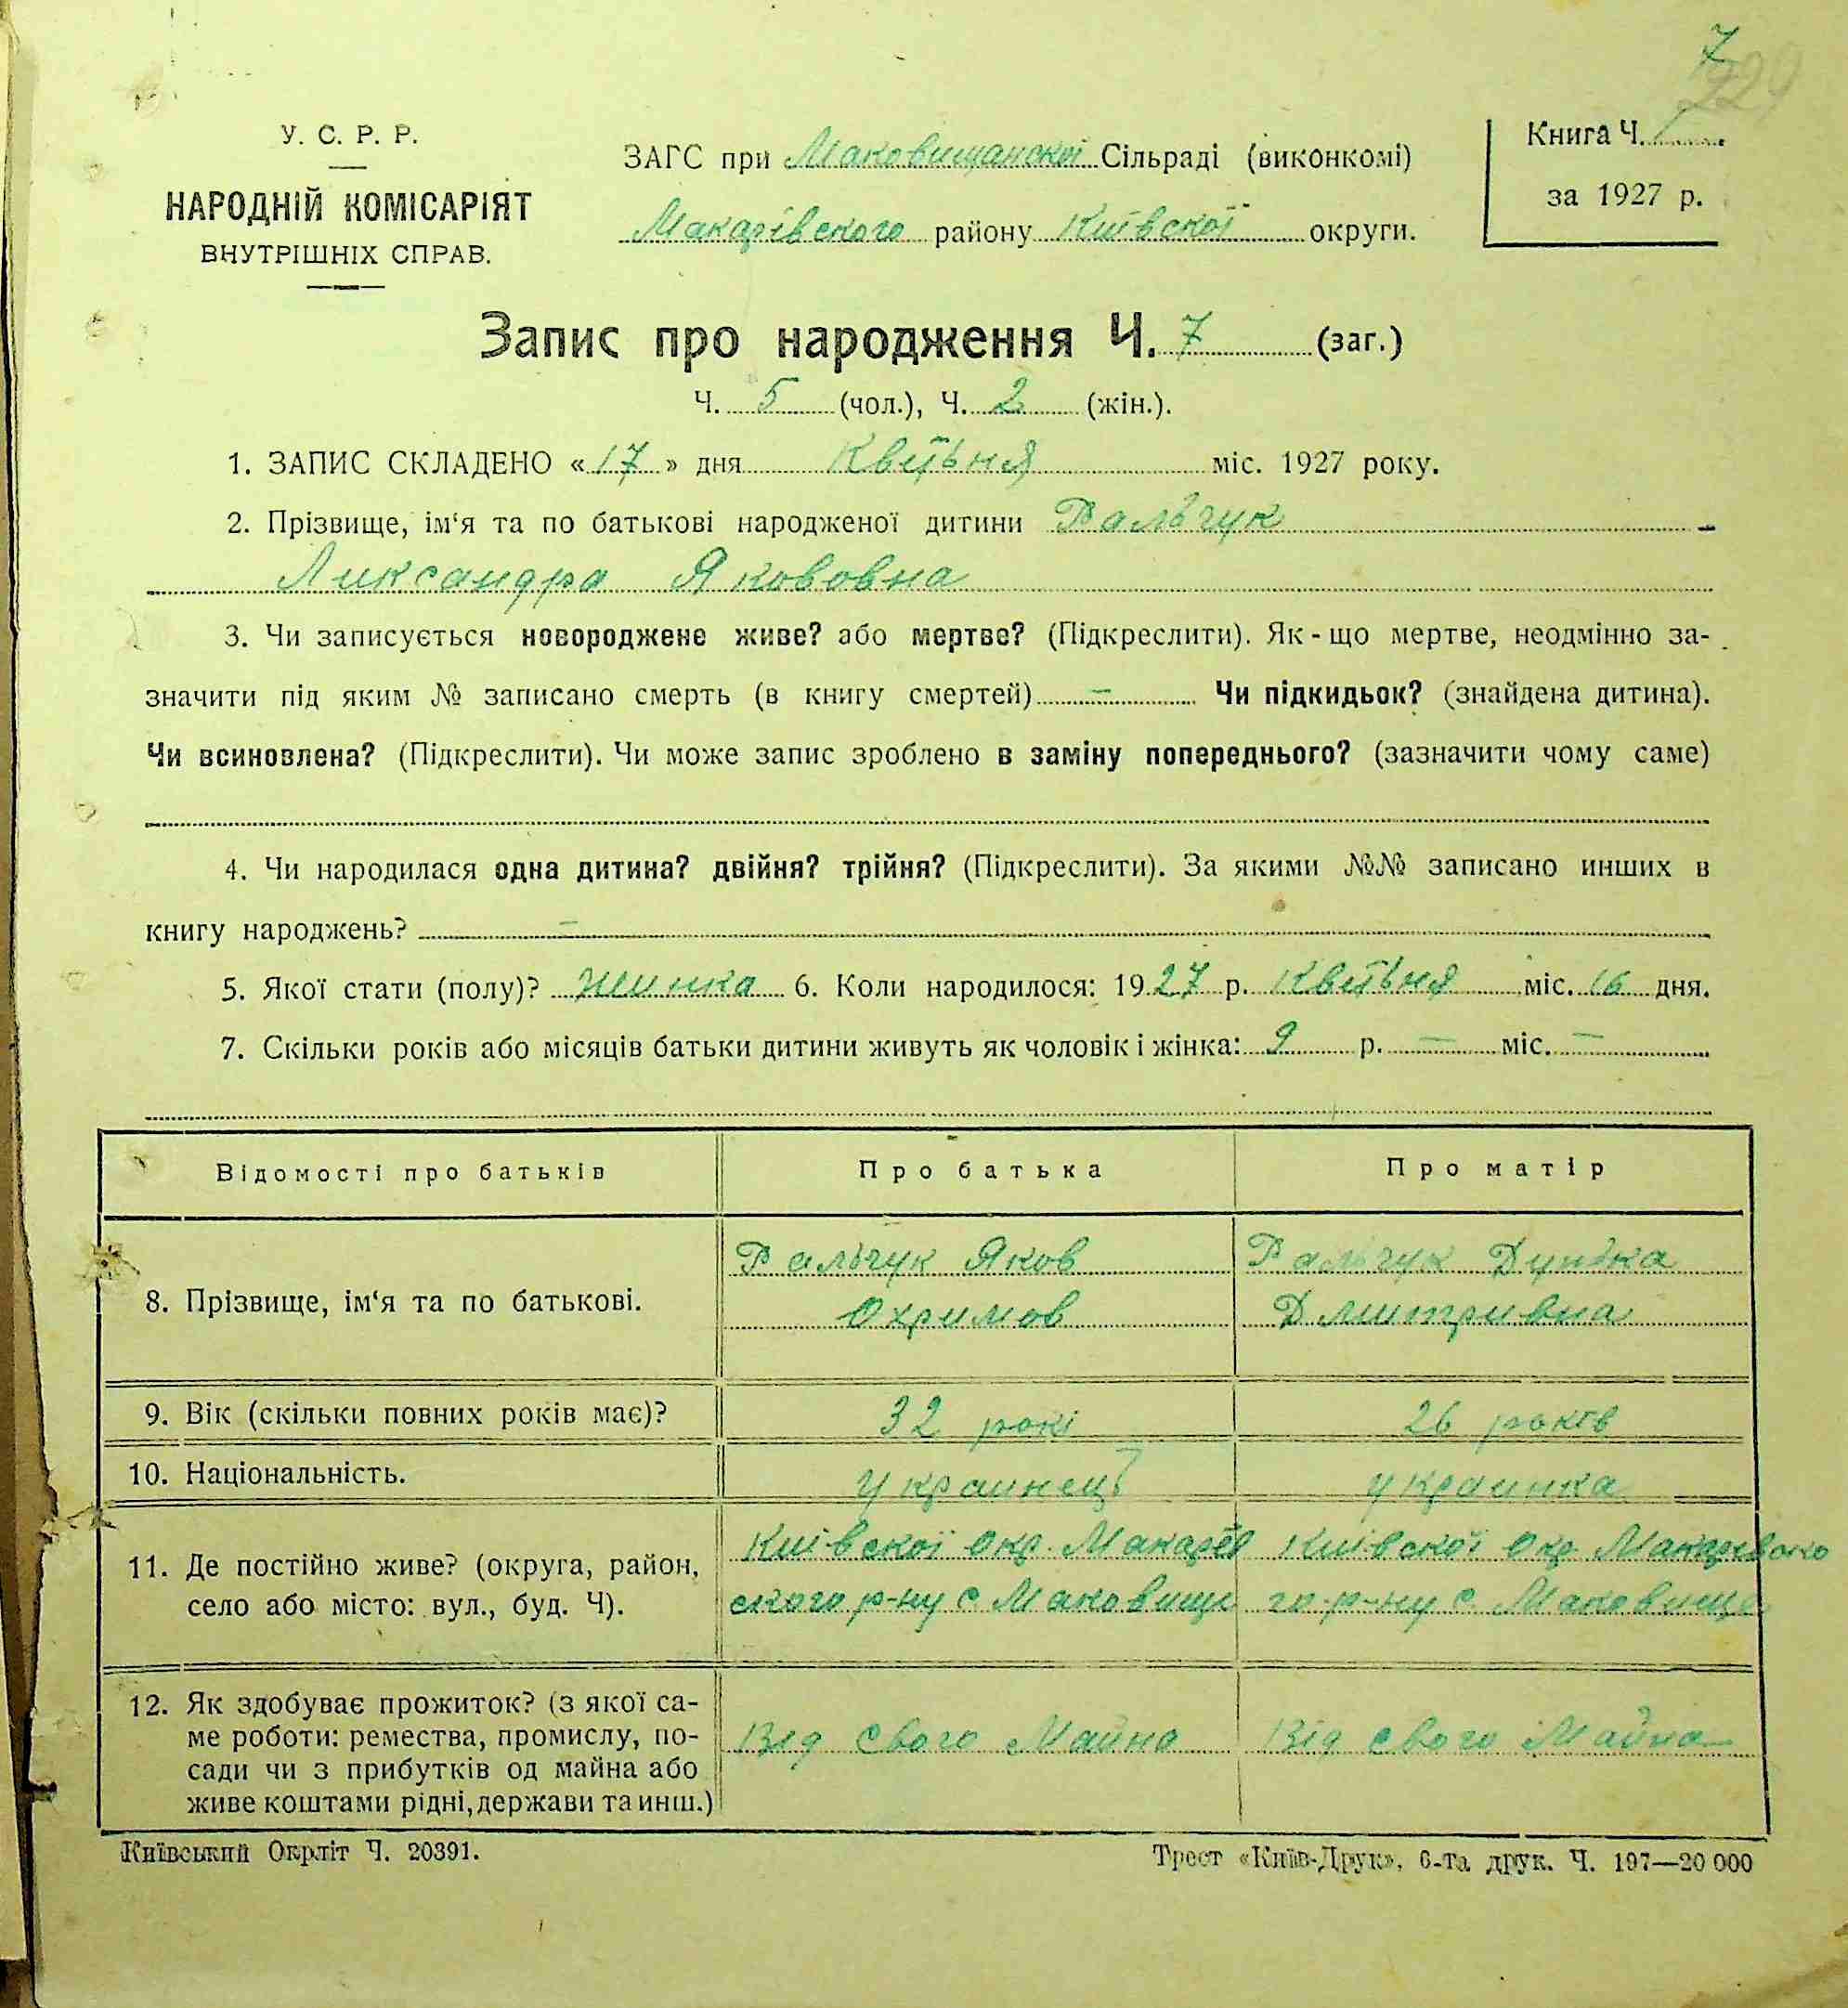 7
229
У. С. Р. Р.
НАРОДНІЙ КОМІСАРІЯТ
ВНУТРІШНІХ СПРАВ.
ЗАГС при Маковищанскої Сільраді (виконкомі)
Макарівского району Київскої округи.
Книга Ч. 1
за 1927 р.
Запис про народження Ч. 7 (заг.)
Ч. 5 (чол.), Ч. 2 (жін.).
1. ЗАПИС СКЛАДЕНО «17» дня Квітьня міс. 1927 року.
2. Прізвище, ім‘я та по батькові народженої дитини Ральчук
Лександра Якововна
3. Чи записується новороджене живе? або мертве? (Підкреслити). Як-що мертве, неодмінно за-
значити під яким № записано смерть (в книгу смертей) – Чи підкидьок? (знайдена дитина).
Чи всиновлена? (Підкреслити). Чи може запис зроблено в заміну попереднього? (зазначити чому саме)
4. Чи народилася одна дитина? двійня? трійня? (Підкреслити). За якими №№ записано инших в
книгу народжень? –
5. Якої стати (полу)? жинка 6. Коли народилося: 1927 р. Квітьня міс. 16 дня.
7. Скільки років або місяців батьки дитини живуть як чоловік і жінка: 9 р. – міс. –
Відомості про батьків Про батька Про матір
8. Прізвище, ім‘я та по батькові.
Ральчук Яков
Охримов
Ральчук Дунька
Дмитривна
9. Вік (скільки повних років має)? 32 рокі 26 років
10. Національність. Украинець Украинка
11. Де постійно живе? (округа, район,
село або місто: вул., буд. Ч).
Київскої Окр. Макарів
ского р-ну с Маковищи
Київскої Окр Макарівско
го р-ну с. Маковище
12. Як здобуває прожиток? (з якої са-
ме роботи: ремества, промислу, по-
сади чи з прибутків од майна або
живе коштами рідні, держави та инш.)
Від свого Майна
Від свого Майна
Київський Окрліт Ч. 20391.
Трест «Київ-Друк», 6-та друк. Ч. 197—20 000